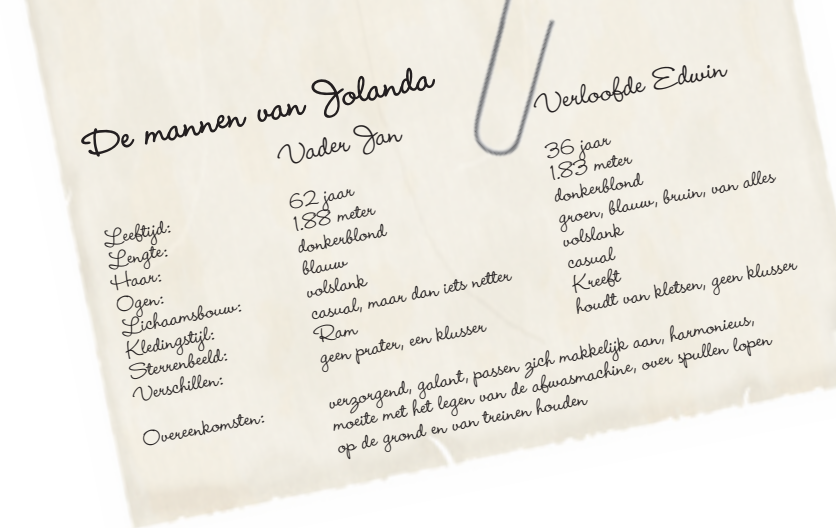 De mannen van Jolanda
Vader Jan Verloofde Edwin
Leeftijd: 62 jaar 36 jaar
Lengte: 1.88 meter 1.83 meter
Haar: donkerblond donkerblond
Ogen: blauw groen, blauw, bruin, van alles
Lichaamsbouw: volslank volslank
Kledingstijl: casual, maar dan iets netter casual
Sterrenbeeld: Ram Kreeft
Verschillen: geen prater, een klusser houdt van kletsen, geen klusser
Overeenkomsten: verzorgend, galant, passen zich makkelijk aan, harmonieus,
moeite met het legen van de afwasmachine, over spullen lopen
op de grond en van treinen houden